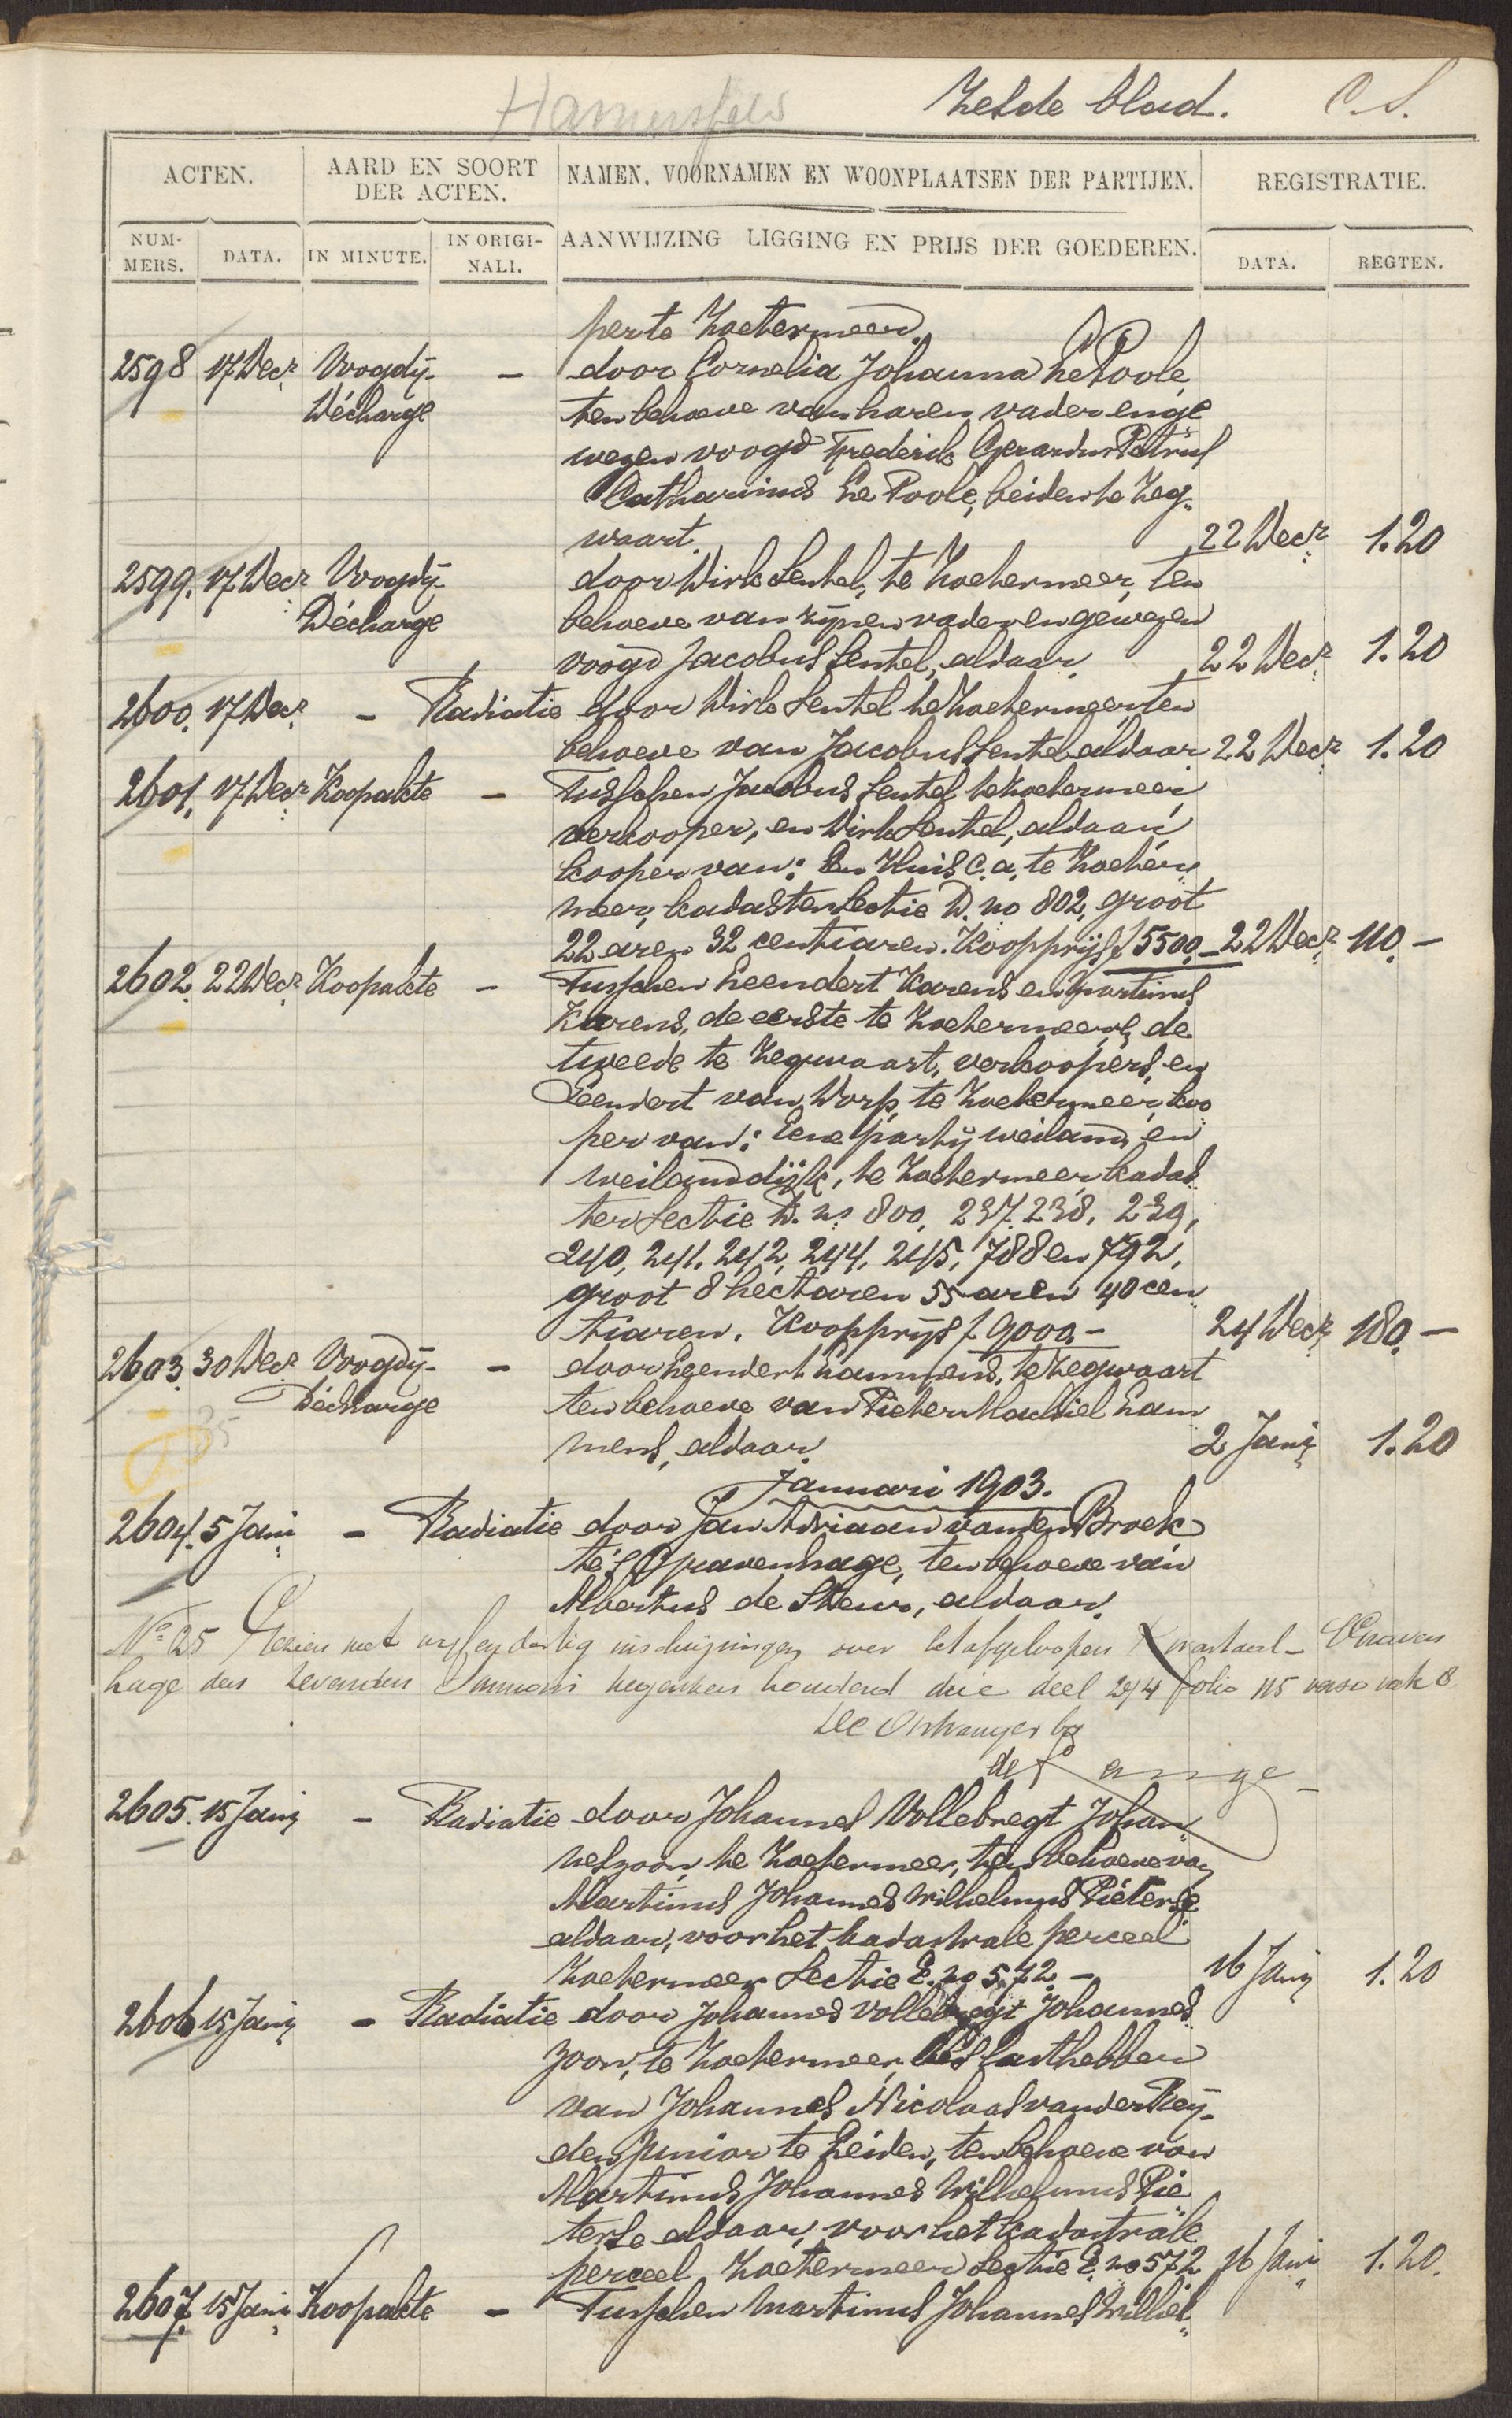 Hamersfeld
Zesde blad. C.S.
ACTEN. AARD EN SOORT DER ACTEN. NAMEN, VOORNAMEN EN WOONPLAATSEN DER PARTIJEN. REGISTRATIE.
NUM-MERS. DATA. IN MINUTE. IN ORIGI-NALI. AANWIJZING LIGGING EN PRIJS DER GOEDEREN. DATA. REGTEN.
per te Zoetermeer.
2598 17 Decr Voogdij- – door Cornelia Johanna Le Poole,
Décharge ten behoeve van haren vader en ge
wezen voogd Frederik Gerardus Petrus
Catharinus Le Poole, beiden te Zeg-
waart. 22 Decr 1.20
2599. 17 Decr Voogdij- door Dirk Sentel, te Zoetermeer, ten
Décharge behoeve van zijnen vader en gewezen
voogd Jacobus Sentel, aldaar. 22 Decr 1.20
2600. 17 Decr – Radiatie door Dirk Sentel te Zoetermeer, ten
behoeve van Jacobus Sentel aldaar 22 Decr 1.20
2601. 17 Decr Koopakte – Tusschen Jacobus Sentel te Zoetermeer
verkooper, en Dirk Sentel, aldaar
kooper van: Een Huis c.a. te Zoeter
meer, kadaster Sectie D. no 802, groot
22 aren 32 centiaren. Koopprijs f 5500.- 22 Decr 110.-
2602. 22 Decr Koopakte – Tusschen Leendert Karens en Martinus
Karens, de eerste te Zoetermeer, de
tweede te Zegwaart, verkoopers, en
Leendert van Dorp, te Zoetermeer, koo
per van: Eene partij weiland, en
weilanddijk, te Zoetermeer, kadas
ter Sectie D. no 800, 237. 238, 239,
240, 241, 242, 244, 245, 788 en 792,
groot 8 hectaren 55 aren 40 cen
tiaren. Koopprijs f 9000.- 24 Decr 180.-
2603. 30 Decr Voogdij- – door Leendert Lammens, te Zegwaart
Décharge ten behoeve van Pieter Machiel Lam
35
mens, aldaar. 2 Jani 1.20
Januari 1903.
2604. 5 Jani – Radiatie door Jan Adriaan van den Broek
te 's Gravenhage, ten behoeve van
Albertus de Steur, aldaar.
No 25 Gezien met vijfendertig inschrijvingen over het afgeloopen kwartaal – 's Graven
hage den zevenden Januari negentien honderd drie deel 294 folio 115 verso vak 8
De Ontvanger
de Lange
2605. 15 Jani – Radiatie door Johannes Vollebregt Johan
neszoon, te Zoetermeer, ten behoeve van
Martinus Johannes Wilhelmus Pieterse
aldaar, voor het kadastrale perceel
Zoetermeer Sectie E. no 572 – 16 Jani 1.20
2606 15 Jani – Radiatie door Johannes Vollebregt Johannes
zoon, te Zoetermeer, als lasthebber
van Johannes Nicolaas van der Rey-
den junior te Leiden, ten behoeve van
Martinus Johannes Wilhelmus Pie
terse aldaar, voor het kadastrale
perceel Zoetermeer Sectie E. no 572 16 Jani 1.20.
2607. 15 Jani Koopakte – Tusschen Martinus Johannes Wilhel